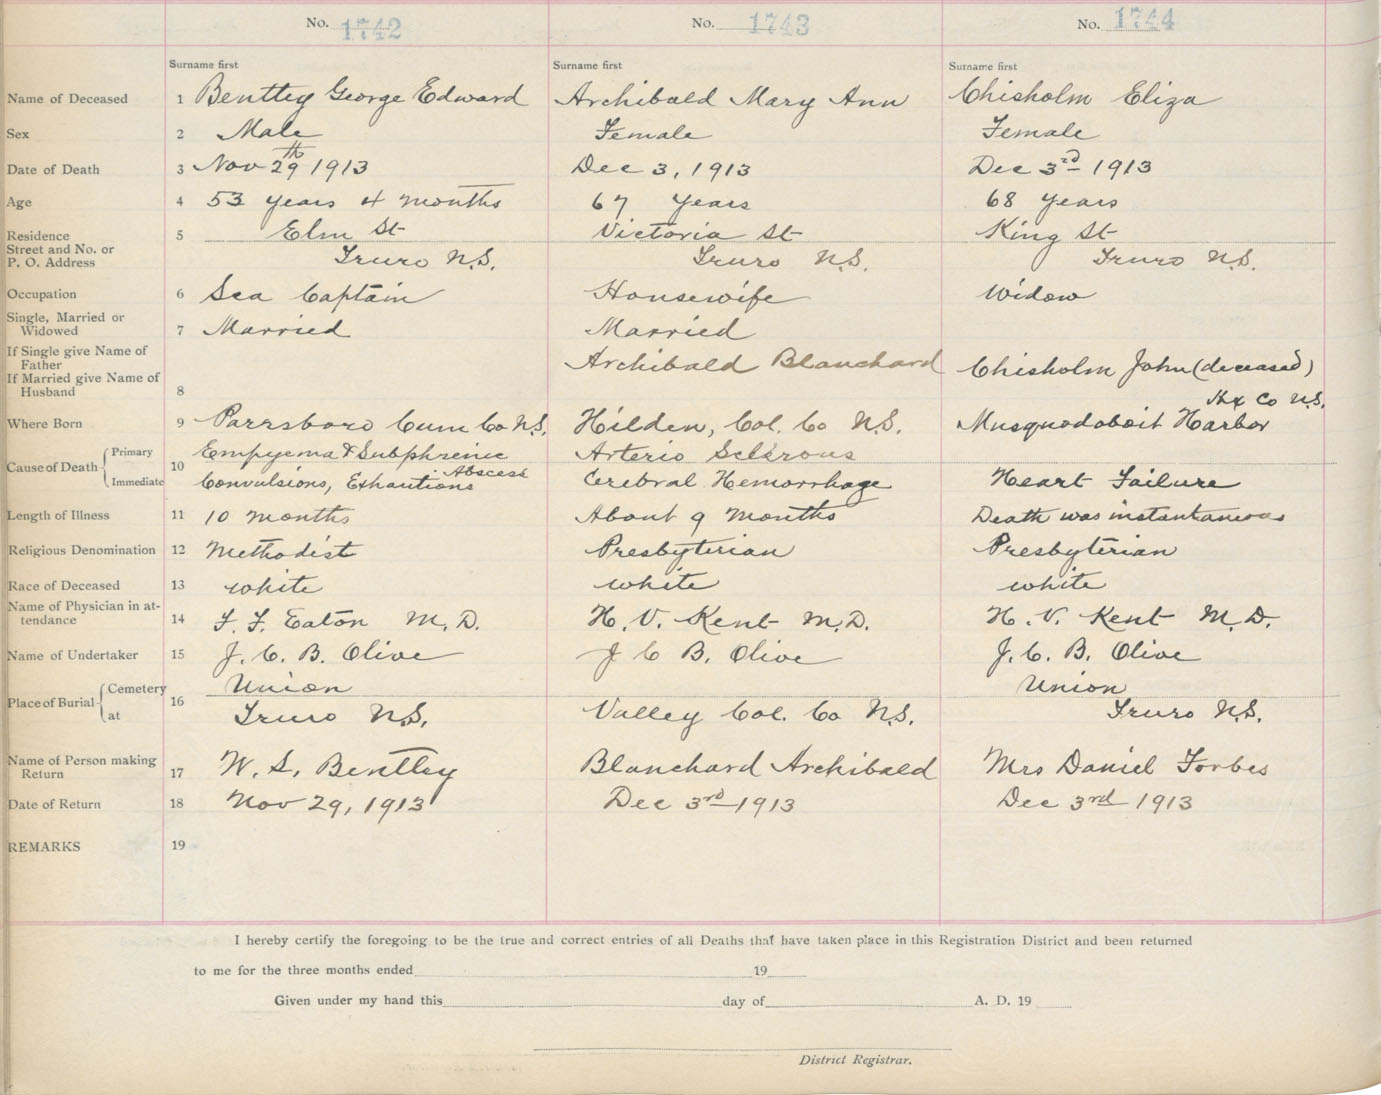 No. 1742 No. 1743 No. 1744
Surname first Surname first Surname first
Name of Deceased 1 Bentley George Edward Archibald Mary Ann Chisholm Eliza
Sex 2 Male Female Female
Date of Death 3 Nov 29th 1913 Dec 3, 1913 Dec 3rd 1913
Age 4 53 years 4 months 67 years 68 years
Residence 5 Elm St Victoria St King St
Street and No. or
P. O. Address Truro N.S. Truro N.S. Truro N.S.
Occupation 6 Sea Captain Housewife Widow
Single, Married or
Widowed 7 Married Married
If Single give Name of
Father Archibald Blanchard Chisholm John (deceased)
If Married give Name of
Husband 8
Hx Co N.S.
Where Born 9 Parrsboro Cum Co N.S. Hilden, Col. Co N.S. Musquodoboit Harbor
Cause of Death Primary 10 Empyema & Subphrenic Arterio Sclerous
Abscess
Immediate Convulsions, Exhaustions Cerebral Hemorrhage Heart Failure
Length of Illness 11 10 months About 9 months Death was instantaneous
Religious Denomination 12 Methodist Presbyterian Presbyterian
Race of Deceased 13 white white white
Name of Physician in at-
tendance 14 F. F. Eaton M.D. H. V. Kent M.D. H. V. Kent M.D.
Name of Undertaker 15 J. C. B. Olive J C B. Olive J. C. B. Olive
Place of Burial Cemetery 16 Union Union
at Truro N.S. Valley Col. Co N.S. Truro N.S.
Name of Person making
Return 17 W. S. Bentley Blanchard Archibald Mrs Daniel Forbes
Date of Return 18 Nov 29, 1913 Dec 3rd 1913 Dec 3rd 1913
REMARKS 19
I hereby certify the foregoing to be the true and correct entries of all Deaths that have taken place in this Registration District and been returned
to me for the three months ended 19
Given under my hand this day of A. D. 19
District Registrar.